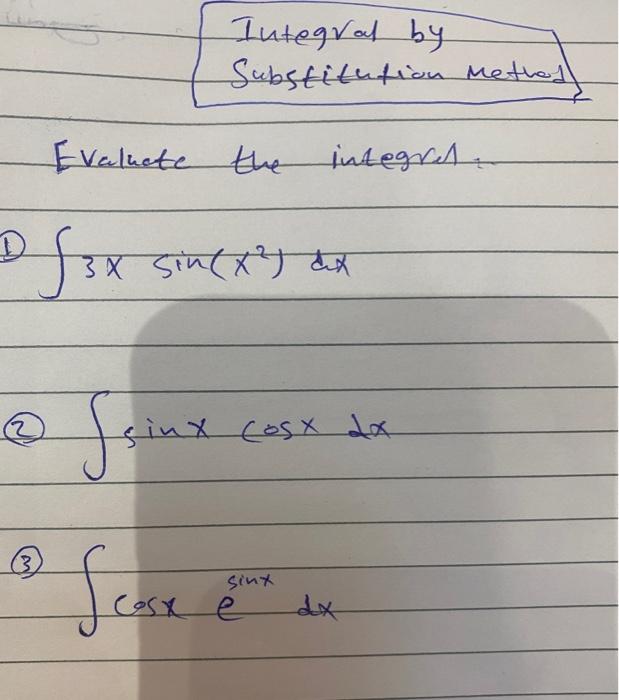 Integral by
Substitution Method
Evaluate the integral.
① ∫ 3x sin(x²) dx
② ∫ sinx cosx dx
③ ∫ cosx e^sinx dx